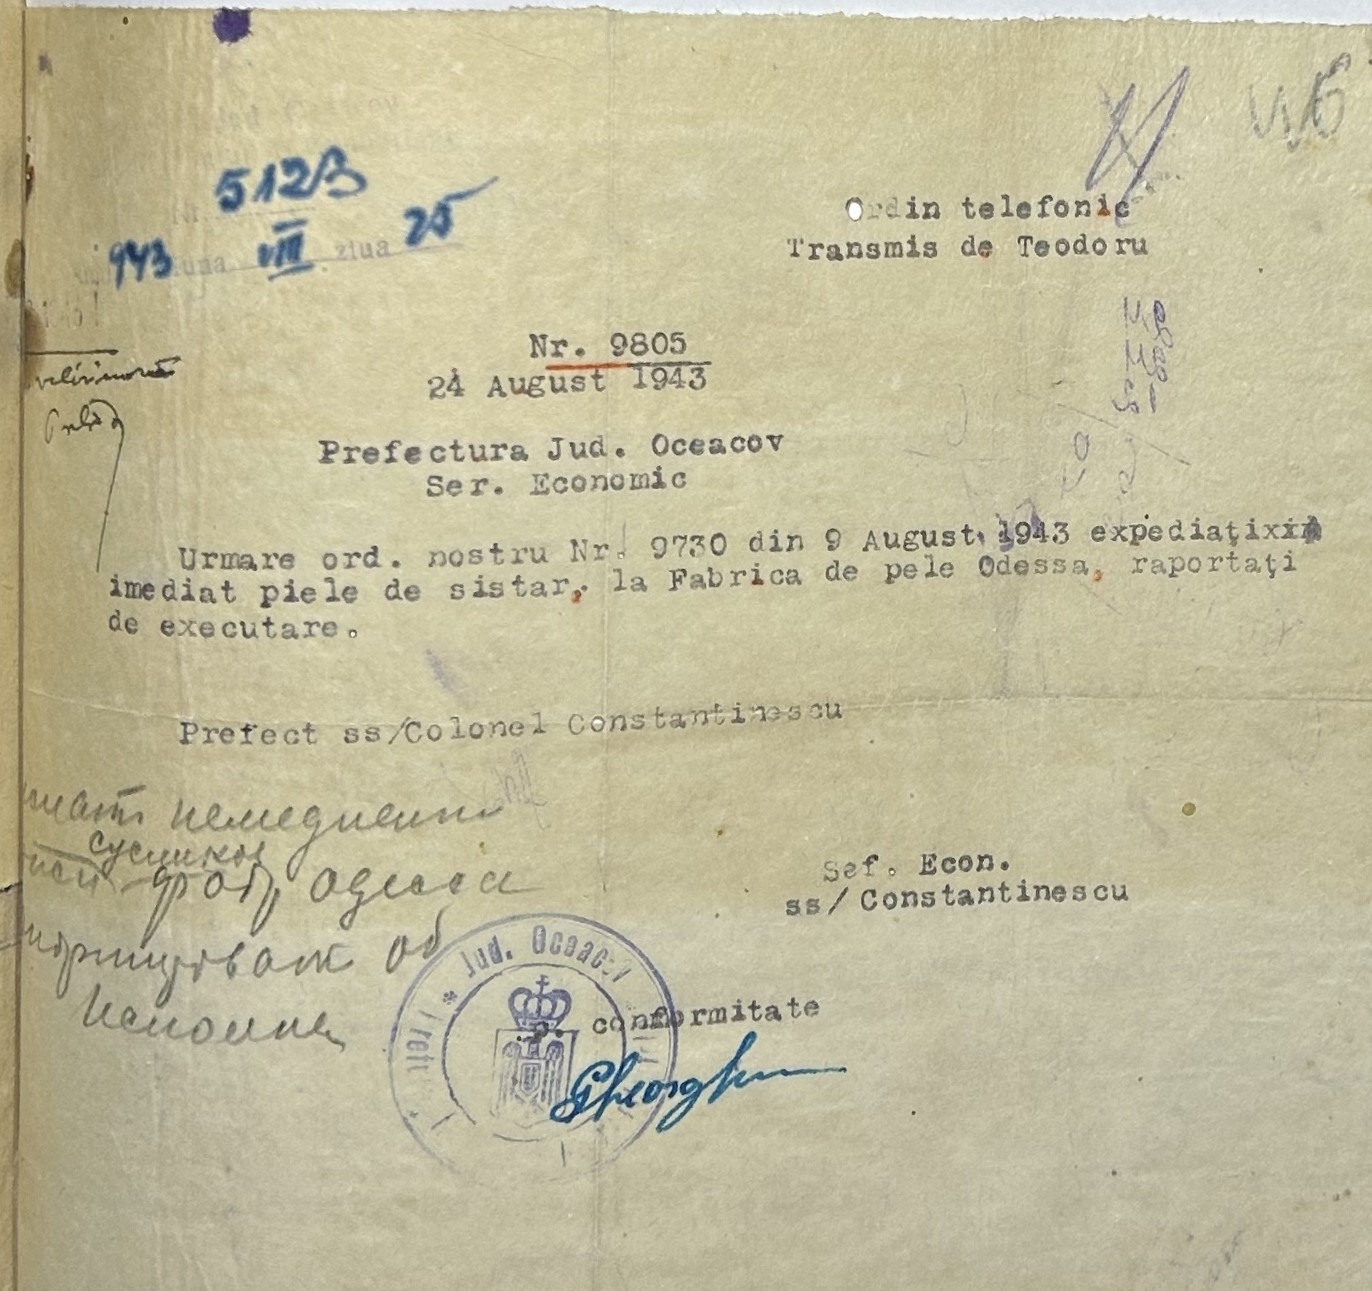 5123
943 VIII ziua 25
Ordin telefonic
Transmis de Teodoru
Nr. 9805
24 August 1943
Prefectura Jud. Oceacov
Ser. Economic
Urmare ord. nostru Nr. 9730 din 9 August 1943 expediaţixim
imediat piele de sistar, la Fabrica de pele Odessa, raportaţi
de executare.
Prefect ss/Colonel Constantinescu
немедленно
сусликов
фабр Одесса
об
исполне
Sef. Econ.
ss/Constantinescu
Jud. Oceacov
p. conformitate